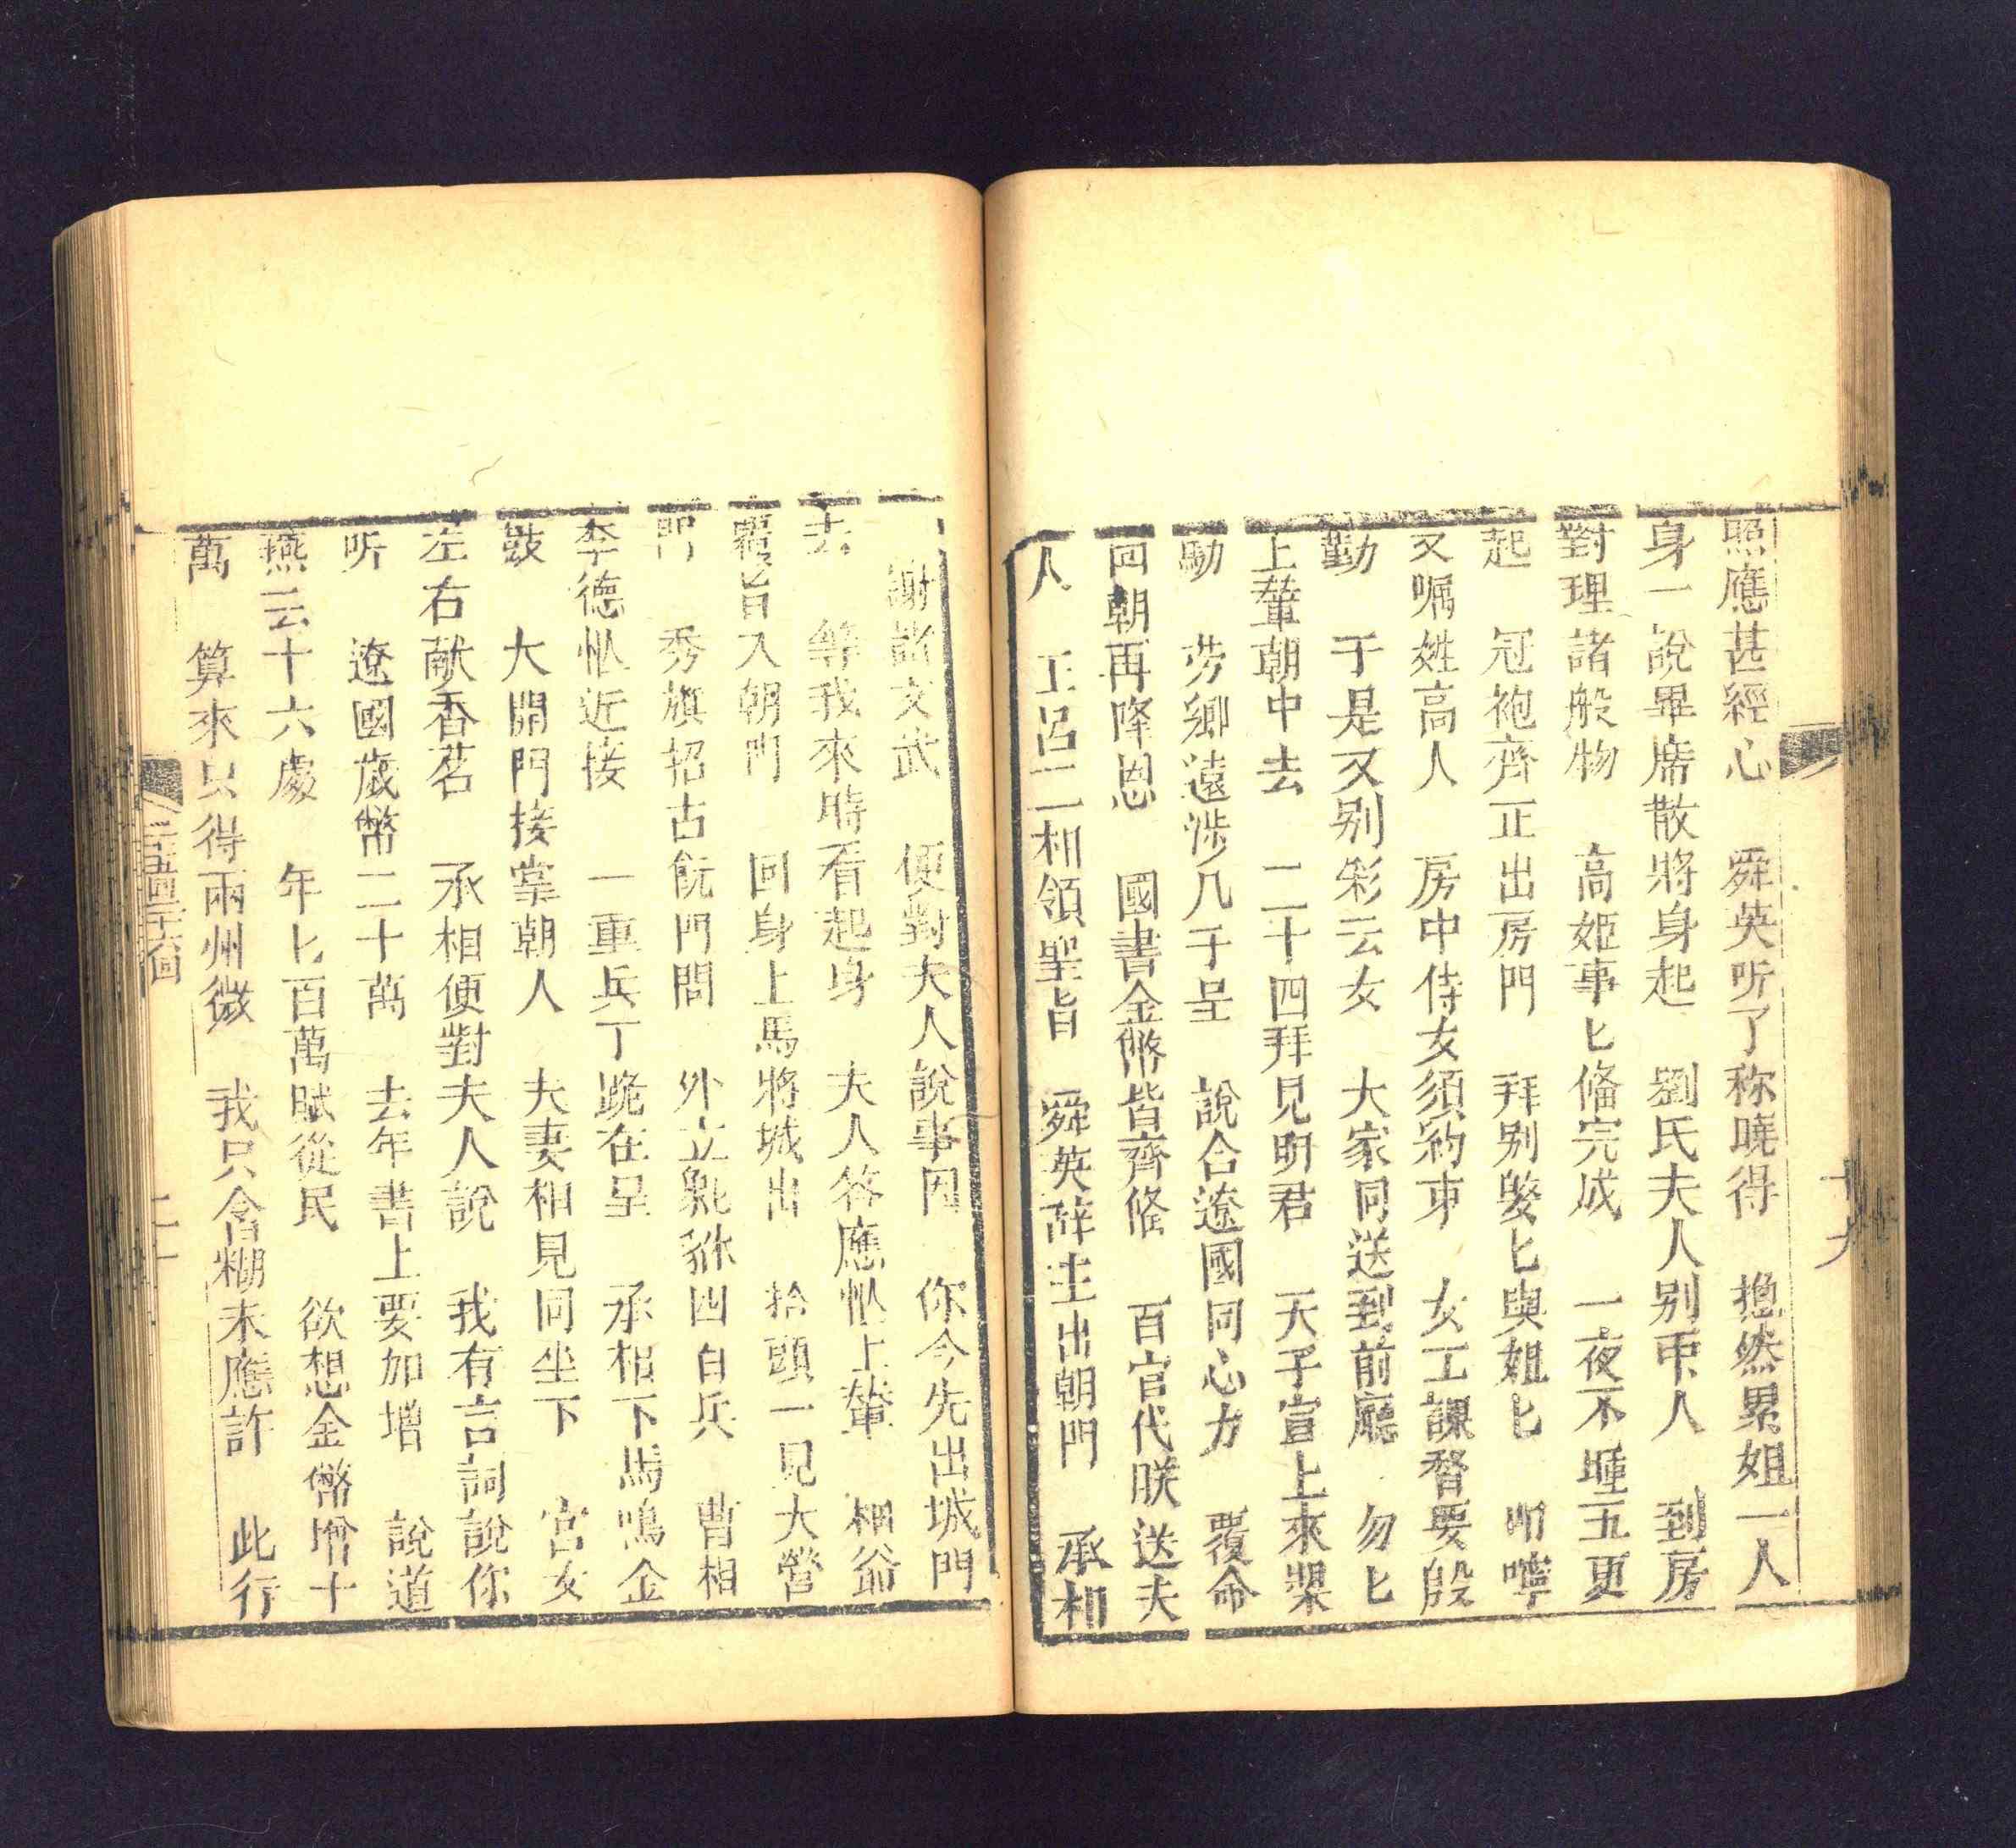 照應甚經心　舜英听了称曉得　揔然累姐一人
身一說畢席散將身起　劉氏夫人别衆人　到房
對理諸般物　高姬事匕俻完成　一夜不㨂五更
起　冠袍齊正出房門　拜别婆匕與姐匕　叮嚀
又嘱姓高人　房中侍女須約束　女工課督要殷
勤　于是又别彩云女　大家同送到前廳　勿匕
上輦朝中去　二十四拜見明君　天子宣上來奨
勵　劳卿遠涉几千呈　說合遼國同心力　覆命
回朝再降恩　國書金幣皆齊俻　百官代朕送夫
人　王呂二相領聖旨　舜英辞主出朝門　承相
謝諸文武　便對夫人說事因　你今先出城門
去　等我來時看起身　夫人答應忙上輦　相爺
覆旨入朝門　回身上馬將城出　抬頭一見大營
門　秀旗招古　門間　外立　四白兵　曹相
李德忙近接　一重兵丁跪在呈　承相下馬鳴金
鼓　大開門接掌朝人　夫妻相見同坐下　宮女
左右献香茗　承相便對夫人說　我有言詞說你
听　遼國歲幣二十萬　去年書上要加增　說道
燕云十六處　年匕百萬賦從民　欲想金幣增十
萬　算來只得兩州微　我只含糊未應許　此行
十九
二十